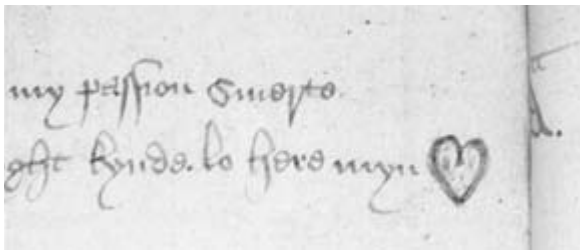 my passion smerte.
ght kynde. lo here myn
d.